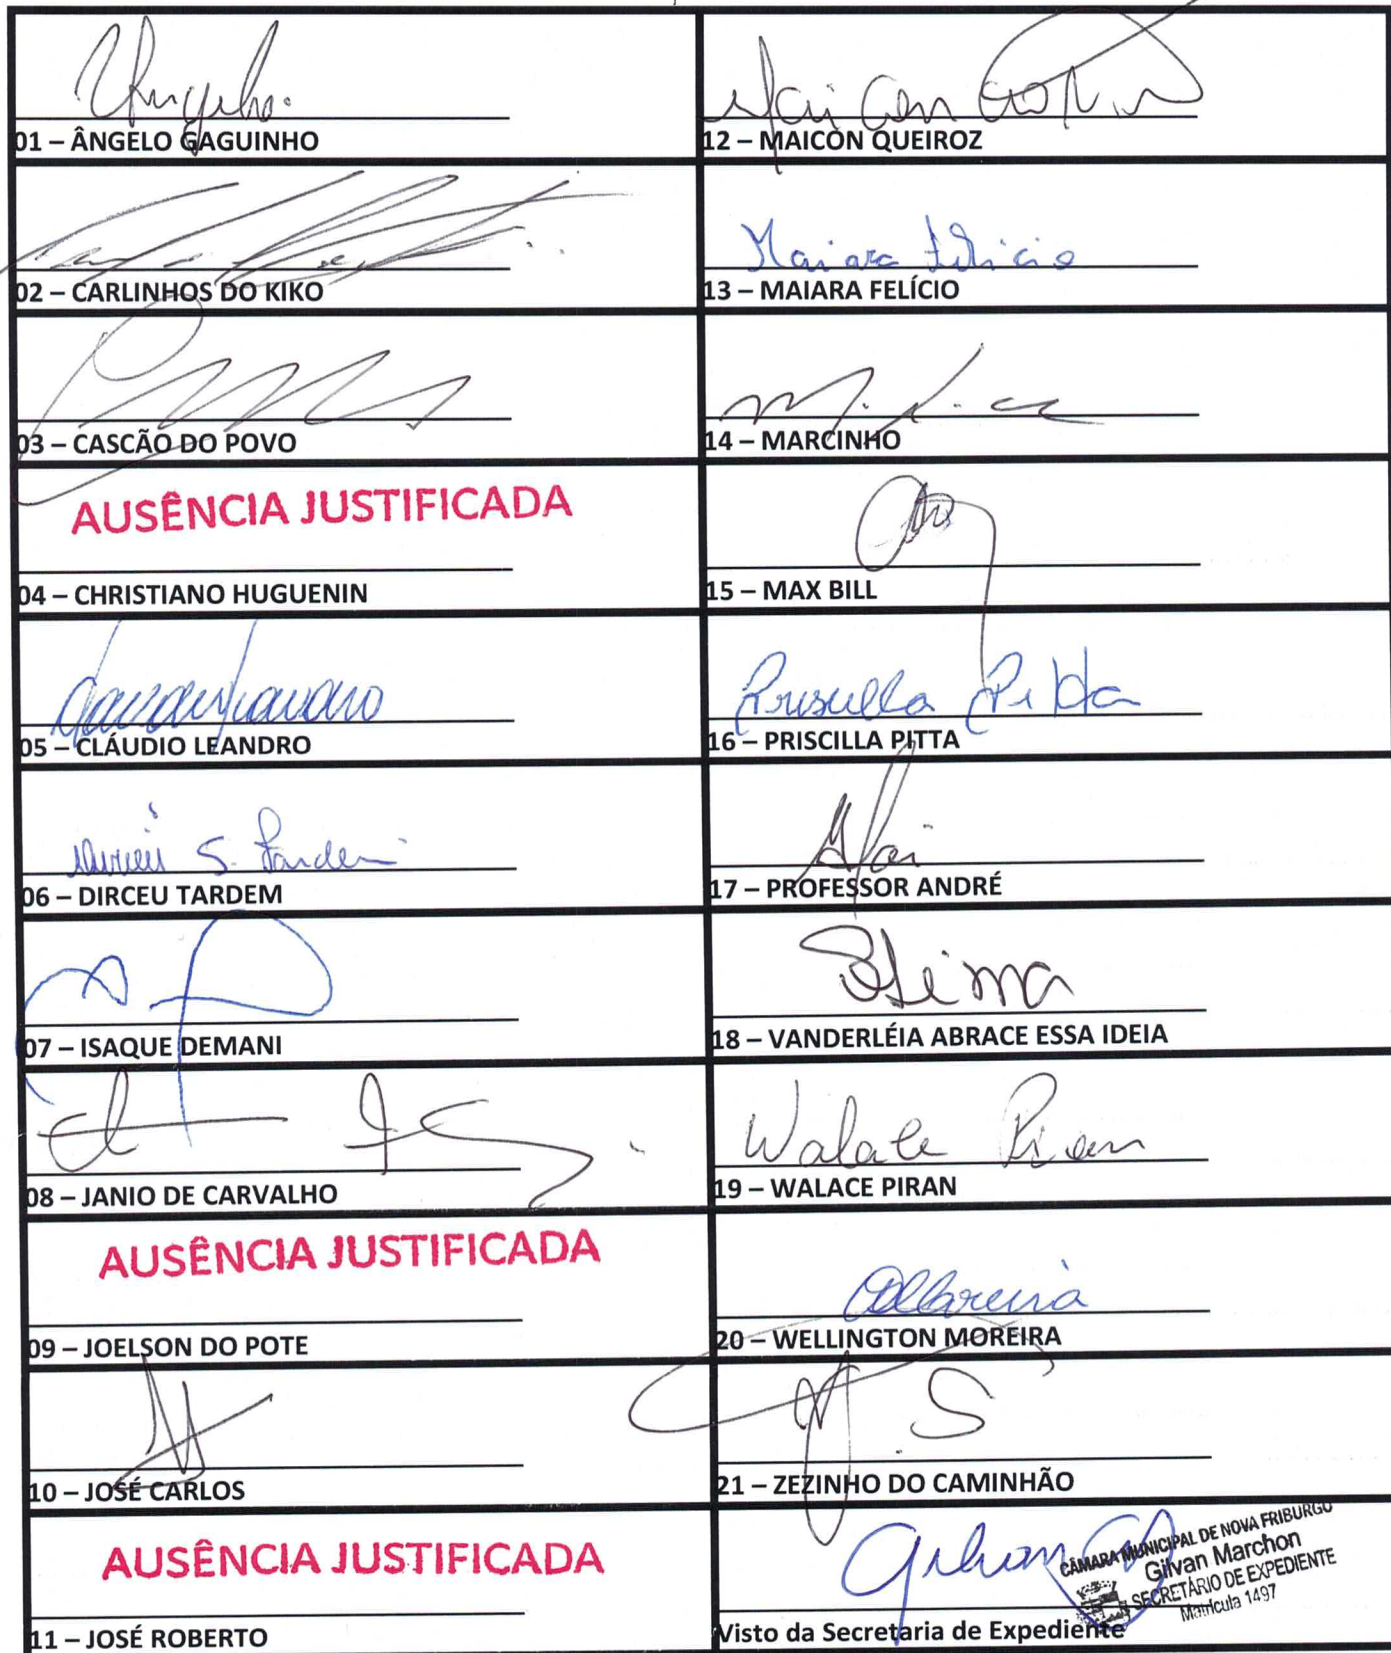 Angelo.
01 – ÂNGELO GAGUINHO
02 – CARLINHOS DO KIKO
03 – CASCÃO DO POVO
AUSÊNCIA JUSTIFICADA
04 – CHRISTIANO HUGUENIN
05 – CLÁUDIO LEANDRO
Dirceu S. Tardem
06 – DIRCEU TARDEM
07 – ISAQUE DEMANI
08 – JANIO DE CARVALHO
AUSÊNCIA JUSTIFICADA
09 – JOELSON DO POTE
10 – JOSÉ CARLOS
AUSÊNCIA JUSTIFICADA
11 – JOSÉ ROBERTO
Maicon
12 – MAICON QUEIROZ
Maiara Felicio
13 – MAIARA FELÍCIO
14 – MARCINHO
15 – MAX BILL
Priscilla Pitta
16 – PRISCILLA PITTA
17 – PROFESSOR ANDRÉ
18 – VANDERLÉIA ABRACE ESSA IDEIA
Walace Piran
19 – WALACE PIRAN
20 – WELLINGTON MOREIRA
21 – ZEZINHO DO CAMINHÃO
Gilvan
CÂMARA MUNICIPAL DE NOVA FRIBURGO
Gilvan Marchon
SECRETÁRIO DE EXPEDIENTE
Matrícula 1497
Visto da Secretaria de Expediente